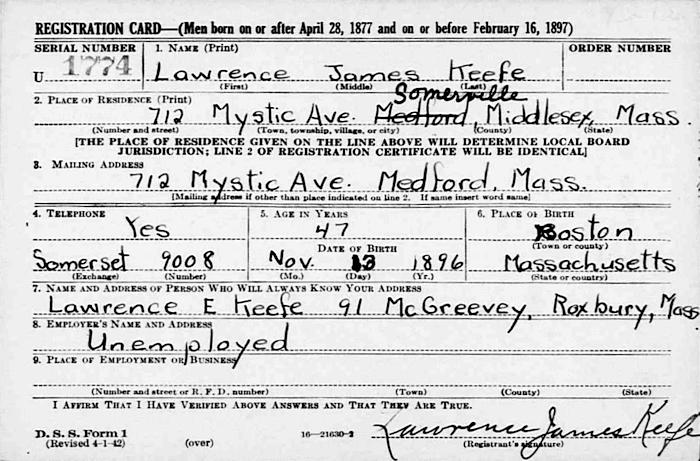 REGISTRATION CARD—(Men born on or after April 28, 1877 and on or before February 16, 1897)
SERIAL NUMBER 1. NAME (Print) ORDER NUMBER
U 1774 Lawrence James Keefe
(First) (Middle) (Last)
Somerville
2. PLACE OF RESIDENCE (Print)
712 Mystic Ave. Medford, Middlesex, Mass.
(Number and street) (Town, township, village, or city) (County) (State)
[THE PLACE OF RESIDENCE GIVEN ON THE LINE ABOVE WILL DETERMINE LOCAL BOARD
JURISDICTION; LINE 2 OF REGISTRATION CERTIFICATE WILL BE IDENTICAL]
3. MAILING ADDRESS
712 Mystic Ave. Medford, Mass.
[Mailing address if other than place indicated on line 2. If same insert word same]
4. TELEPHONE 5. AGE IN YEARS 6. PLACE OF BIRTH
Yes 47 Boston
DATE OF BIRTH (Town or county)
Somerset 9008 Nov. 13 1896 Massachusetts
(Exchange) (Number) (Mo.) (Day) (Yr.) (State or country)
7. NAME AND ADDRESS OF PERSON WHO WILL ALWAYS KNOW YOUR ADDRESS
Lawrence E Keefe 91 McGreevey, Roxbury, Mass
8. EMPLOYER'S NAME AND ADDRESS
Unemployed
9. PLACE OF EMPLOYMENT OR BUSINESS
(Number and street or R. F. D. number) (Town) (County) (State)
I AFFIRM THAT I HAVE VERIFIED ABOVE ANSWERS AND THAT THEY ARE TRUE.
D. S. S. Form 1
(Revised 4-1-42) (over) 16—21630-2 Lawrence James Keefe
(Registrant's signature)